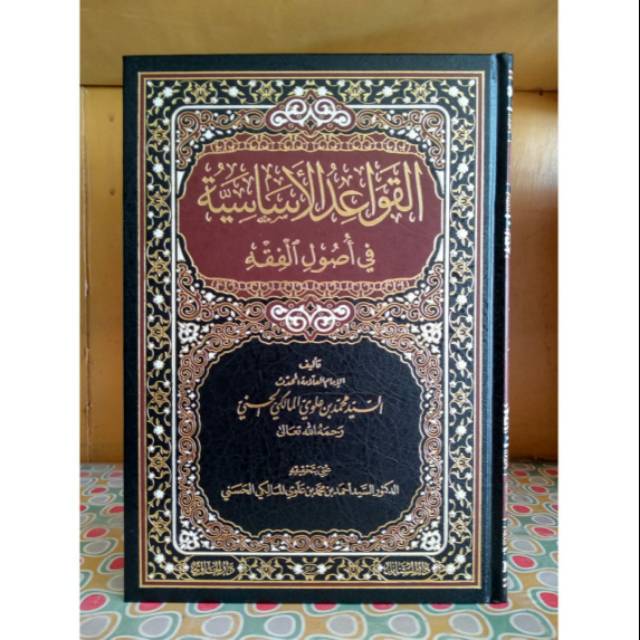 القواعد الأساسية
في أصول الفقه
تأليف
الإمام العلامة المحدث
السيد محمد بن علوي المالكي الحسني
رحمه الله تعالى
الدكتور السيد أحمد بن محمد بن علوي المالكي الحسني